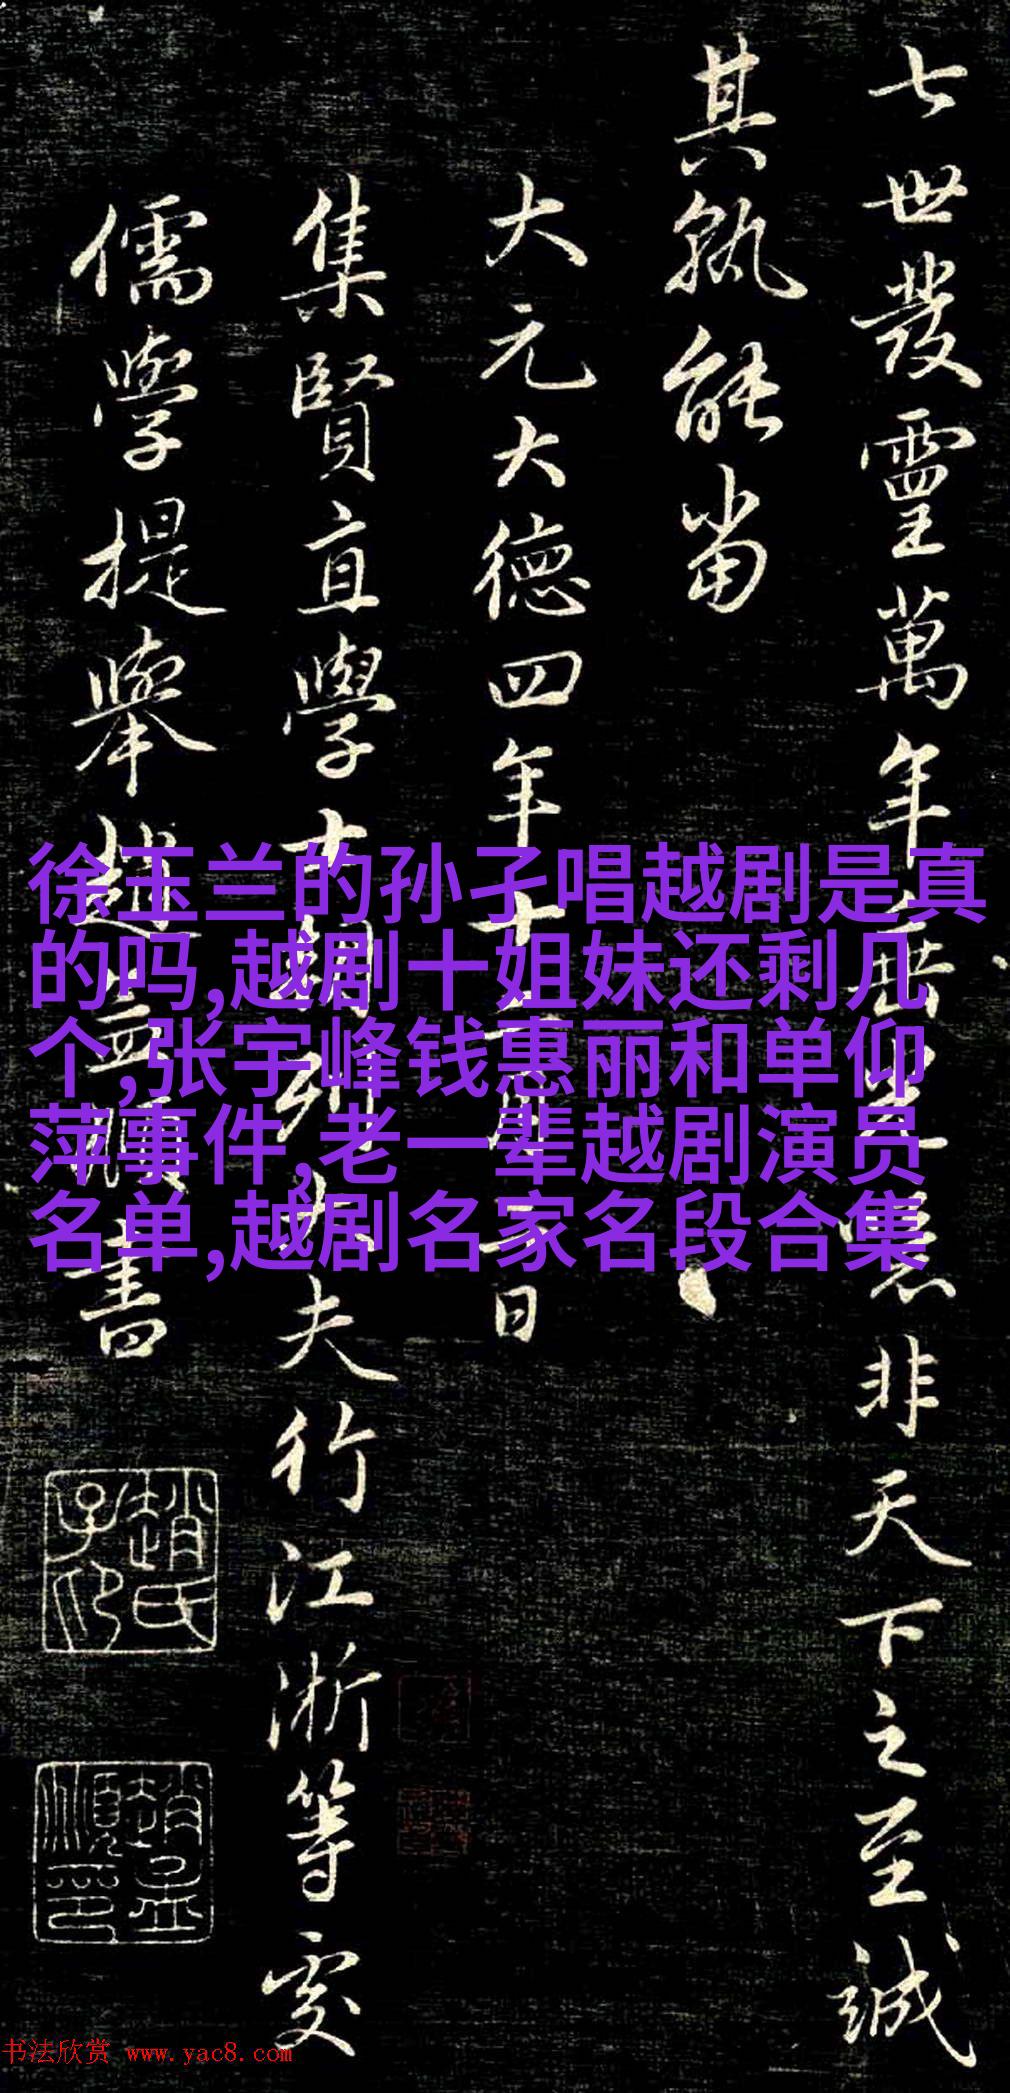 七世發靈萬年垂
非天下之至誠
其孰能當
大元大德四年十
日
集賢直學士朝列大夫行江浙等處
儒學提舉趙孟頫書
趙氏子印
趙孟頫印
徐玉兰的孙子唱越剧是真
的吗,越剧十姐妹还剩几
个,张宇峰钱惠丽和单仰
萍事件,老一辈越剧演员
名单,越剧名家名段合集
书法欣赏 www.yac8.com